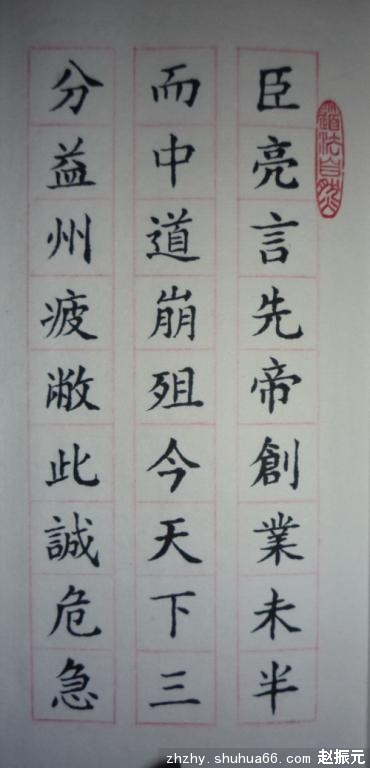 臣亮言先帝創業未半
而中道崩殂今天下三
分益州疲敝此誠危急
道法自然
zhzhy.shuhua66.com 赵振元